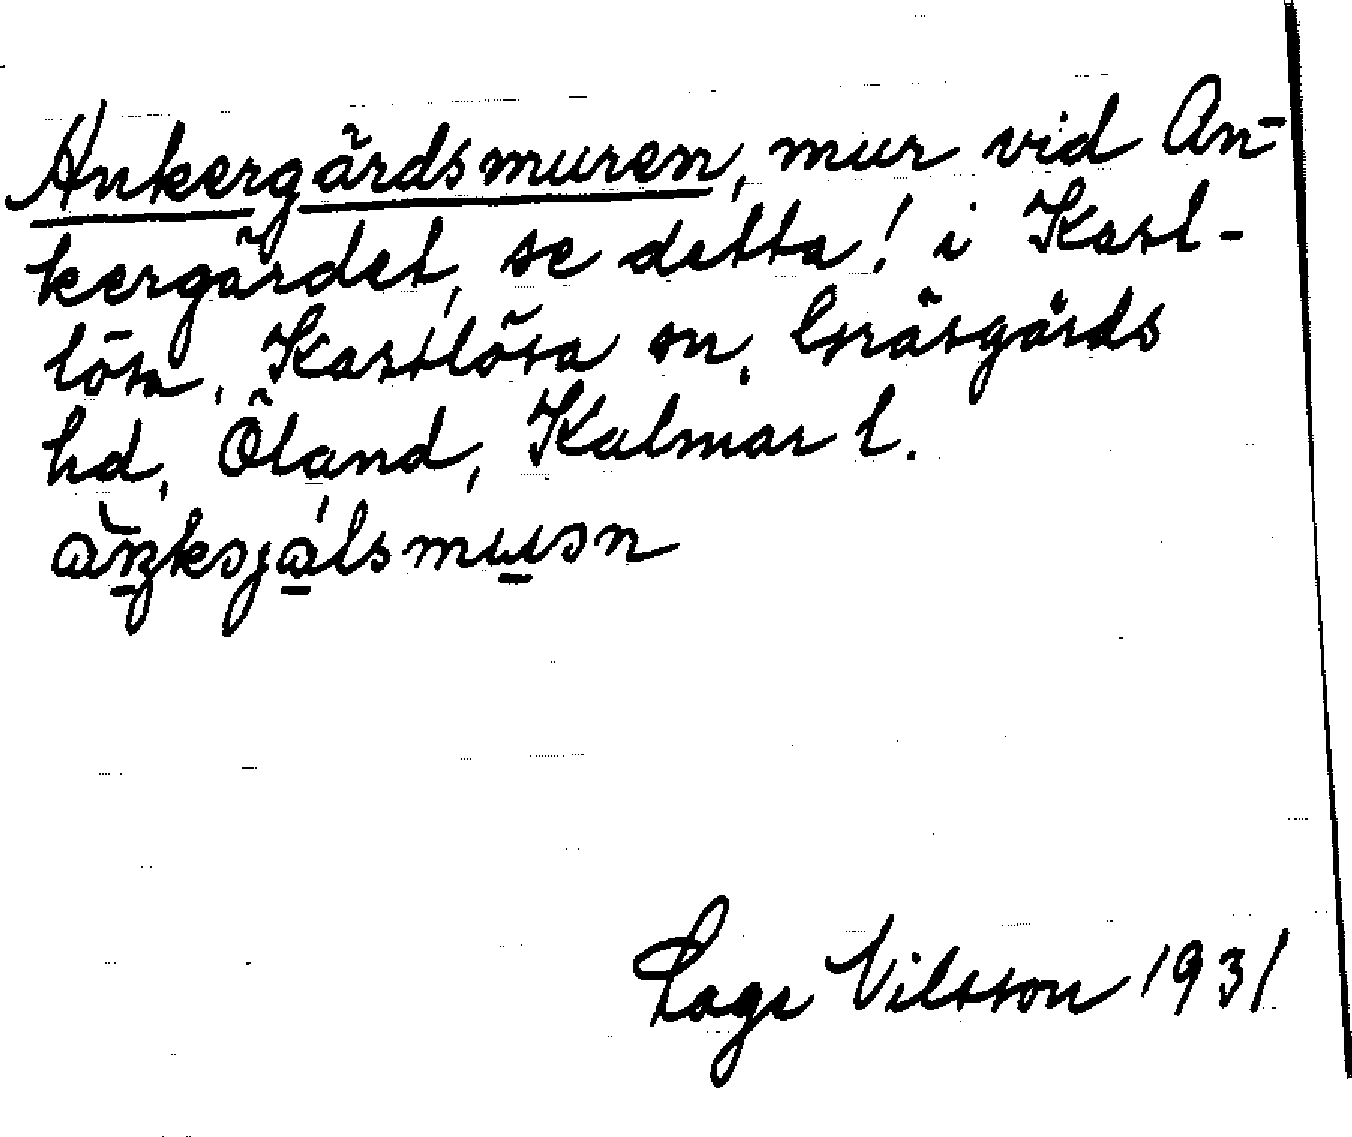 Ankergärdsmuren, mur vid An-
kergärdet, se detta! i Kast-
lösa, Kastlösa sn, Gräsgårds
hd, Öland, Kalmar l.
Lage Nilsson 1931